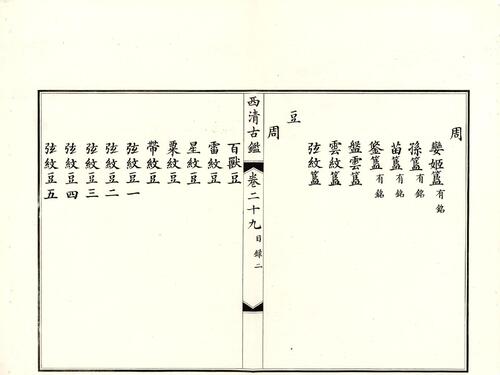 周
姬簋有銘
孫簋有銘
苗簋有銘
簋有銘
雲簋
雲紋簋
弦紋簋
豆
周
西清古鑑
卷二十九
目錄二
百獸豆
雷紋豆
星紋豆
粟紋豆
帶紋豆
弦紋豆一
弦紋豆二
弦紋豆三
弦紋豆四
弦紋豆五